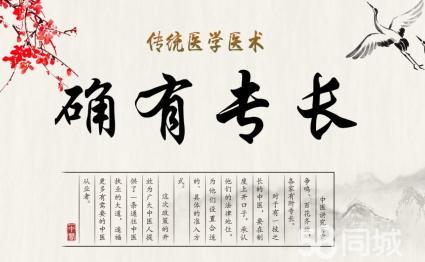 传统医学医术
确有专长
中医讲究
争鸣、百花齐放，
各家有所专长。
对于有一技之
长的中医，要在制
度上开口子，承认
他们的法律地位，
为他们设置合适
的、具体的准入方
式。
这次政策的开
放为广大中医人提
供了一条通往中医
执业的大道，造福
更多有需要的中医
从业者。
同城